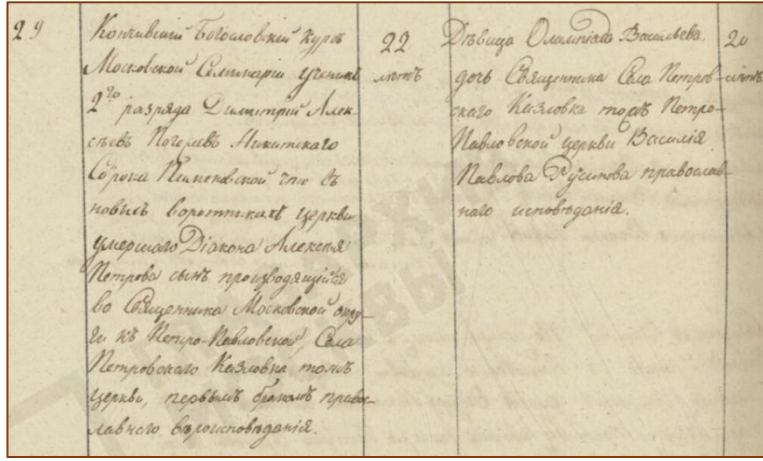 29
Кончившій Богословскій Курсъ
Московской Семинаріи ученикъ
2го разряда Димитрій Алек-
сѣевъ Погорѣевъ Никитскаго
Сорока Пименовской что въ
новыхъ воротникахъ церкви
умершаго Діакона Алексѣя
Петрова сынъ производящійся
во Священника Московской окру-
ги къ Петро-Павловской, Села
Петровскаго Казловка тожъ
церкви, первымъ бракомъ право-
славнаго вѣроисповѣданія.
22
лѣтъ
Дѣвица Олимпіада Васильева,
дочь Священника Села Петров-
скаго Казловка тожъ Петро-
Павловской церкви Василія
Павлова Русинова православ-
наго исповѣданія.
20
лѣтъ